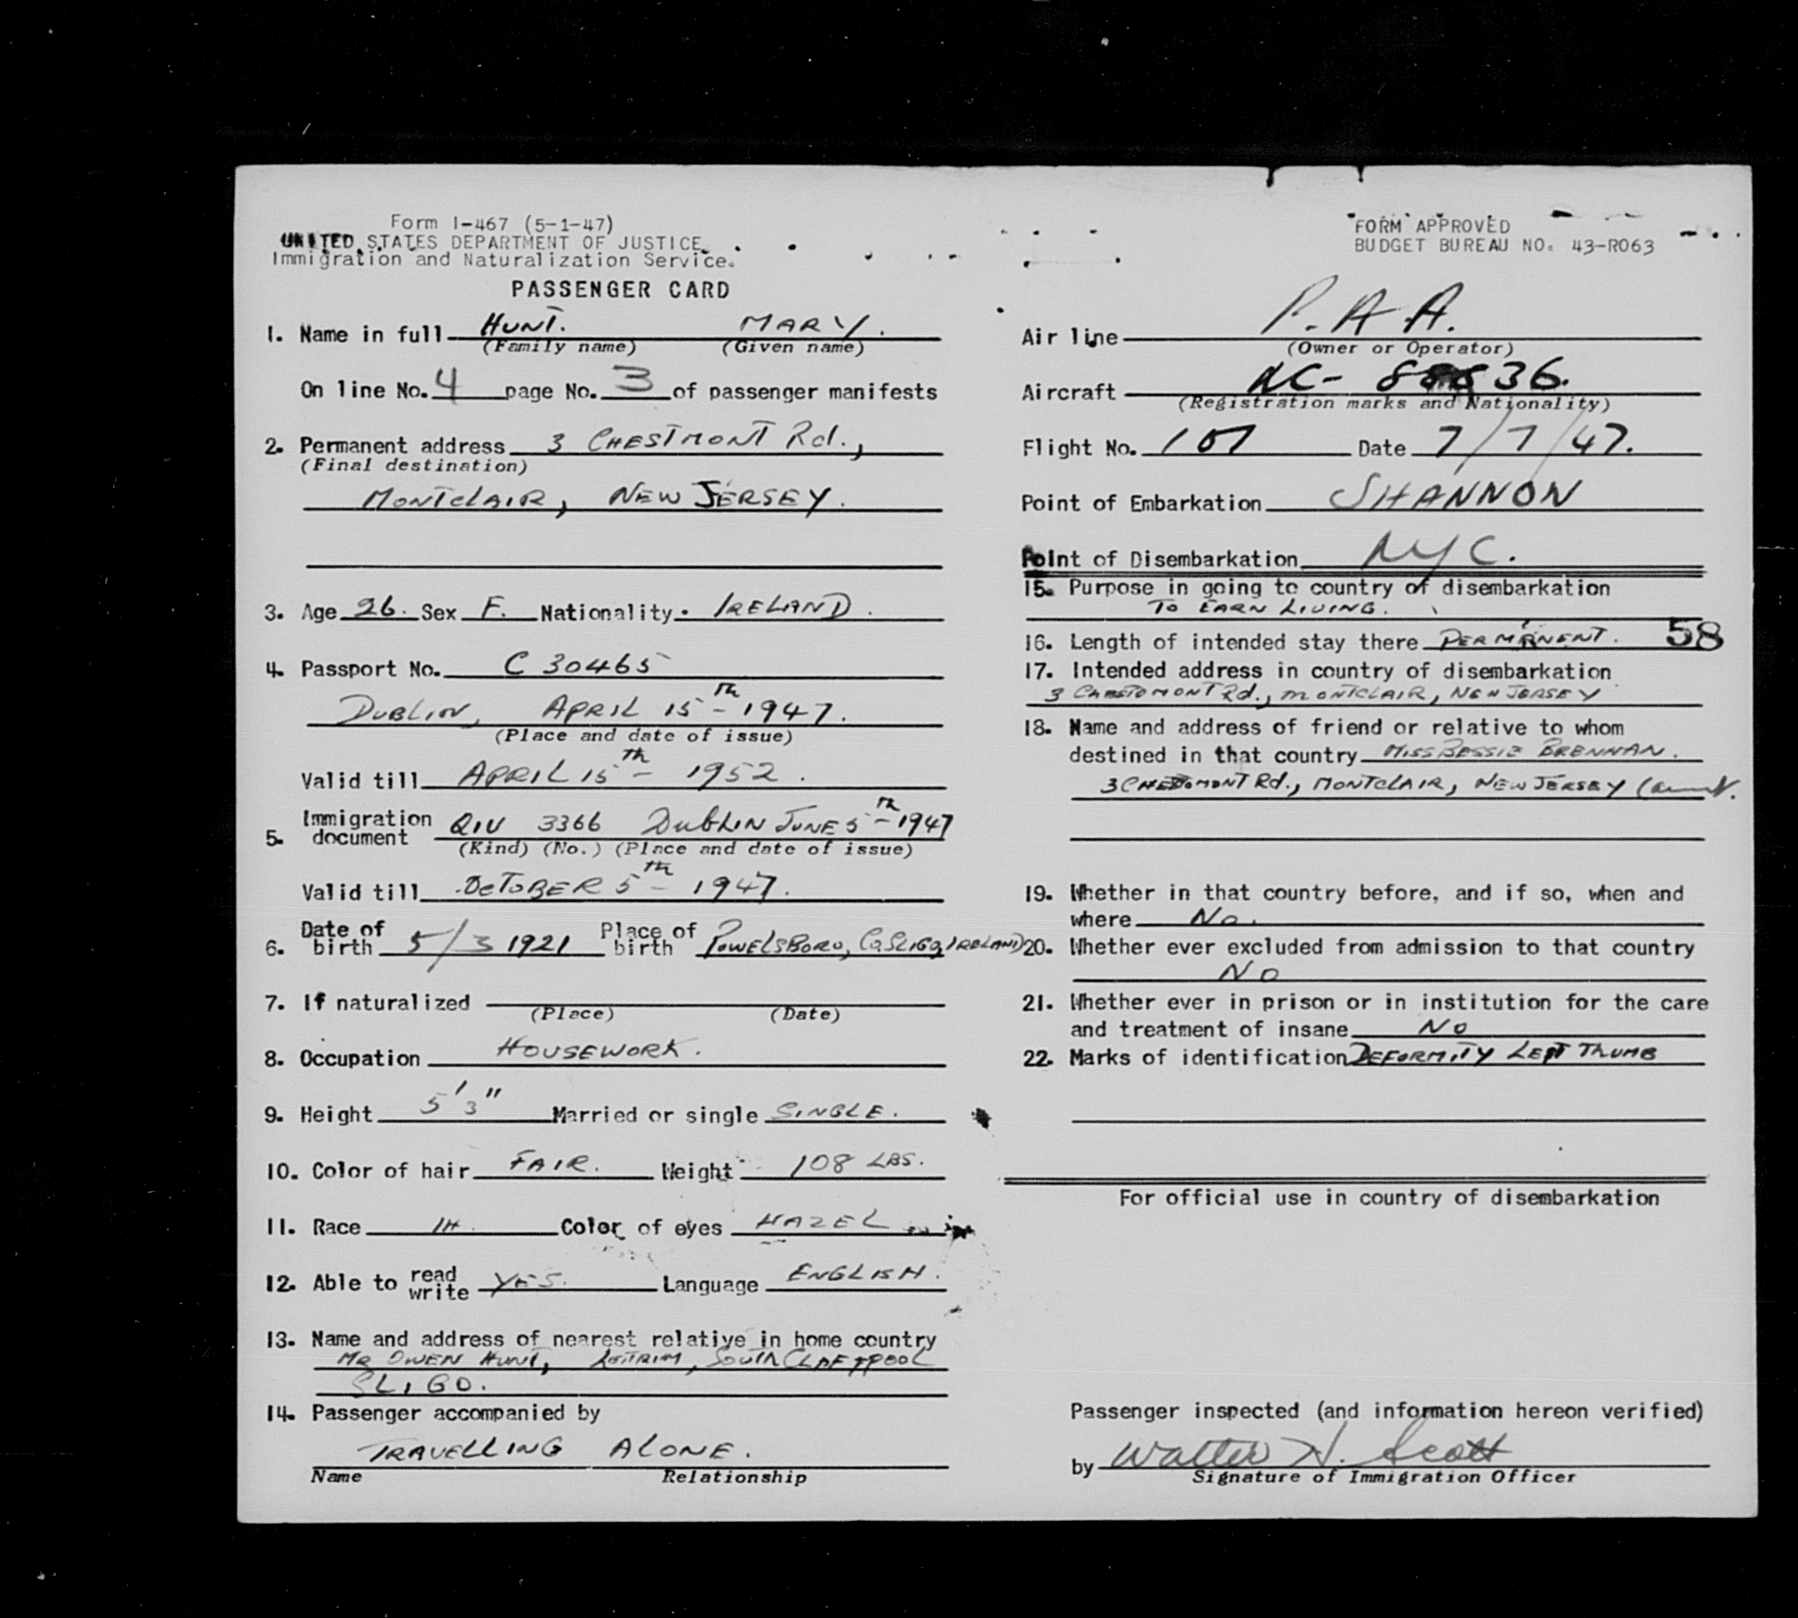 Form I-467 (5-1-47)
UNITED STATES DEPARTMENT OF JUSTICE
Immigration and Naturalization Service.
PASSENGER CARD
1. Name in full HUNT. MARY.
(Family name) (Given name)
On line No. 4 page No. 3 of passenger manifests
2. Permanent address 3 CHESTMONT Rd.,
(Final destination)
MONTCLAIR, NEW JERSEY.
3. Age 26. Sex F. Nationality. IRELAND.
4. Passport No. C 30465
DUBLIN, APRIL 15th - 1947.
(Place and date of issue)
Valid till APRIL 15th - 1952.
5. Immigration document QIV 3366 DUBLIN JUNE 5th - 1947
(Kind) (No.) (Place and date of issue)
Valid till OCTOBER 5th - 1947.
6. Date of birth 5/3 1921 Place of birth POWELSBORO, Co. SLIGO, IRELAND
7. If naturalized
(Place) (Date)
8. Occupation HOUSEWORK.
9. Height 5'3" Married or single SINGLE.
10. Color of hair FAIR. Weight 108 LBS.
11. Race Color of eyes HAZEL
12. Able to read write YES. Language ENGLISH.
13. Name and address of nearest relative in home country
MR OWEN HUNT, LEITRIM, SOUTH
SLIGO.
14. Passenger accompanied by
TRAVELLING ALONE.
Name Relationship
FORM APPROVED
BUDGET BUREAU NO. 43-R063
Air line P.A.A.
(Owner or Operator)
Aircraft NC- 88836.
(Registration marks and Nationality)
Flight No. 107 Date 7/7/47.
Point of Embarkation SHANNON
Point of Disembarkation NYC.
15. Purpose in going to country of disembarkation
TO EARN LIVING.
16. Length of intended stay there PERMANENT. 58
17. Intended address in country of disembarkation
3 Rd., MONTCLAIR, NEW JERSEY
18. Name and address of friend or relative to whom
destined in that country MISS BESSIE BRENNAN.
3 Rd., MONTCLAIR, NEW JERSEY (aunt.
19. Whether in that country before, and if so, when and
where No.
20. Whether ever excluded from admission to that country
NO
21. Whether ever in prison or in institution for the care
and treatment of insane NO
22. Marks of identification DEFORMITY LEFT THUMB
For official use in country of disembarkation
Passenger inspected (and information hereon verified)
by Walter H. Scott
Signature of Immigration Officer